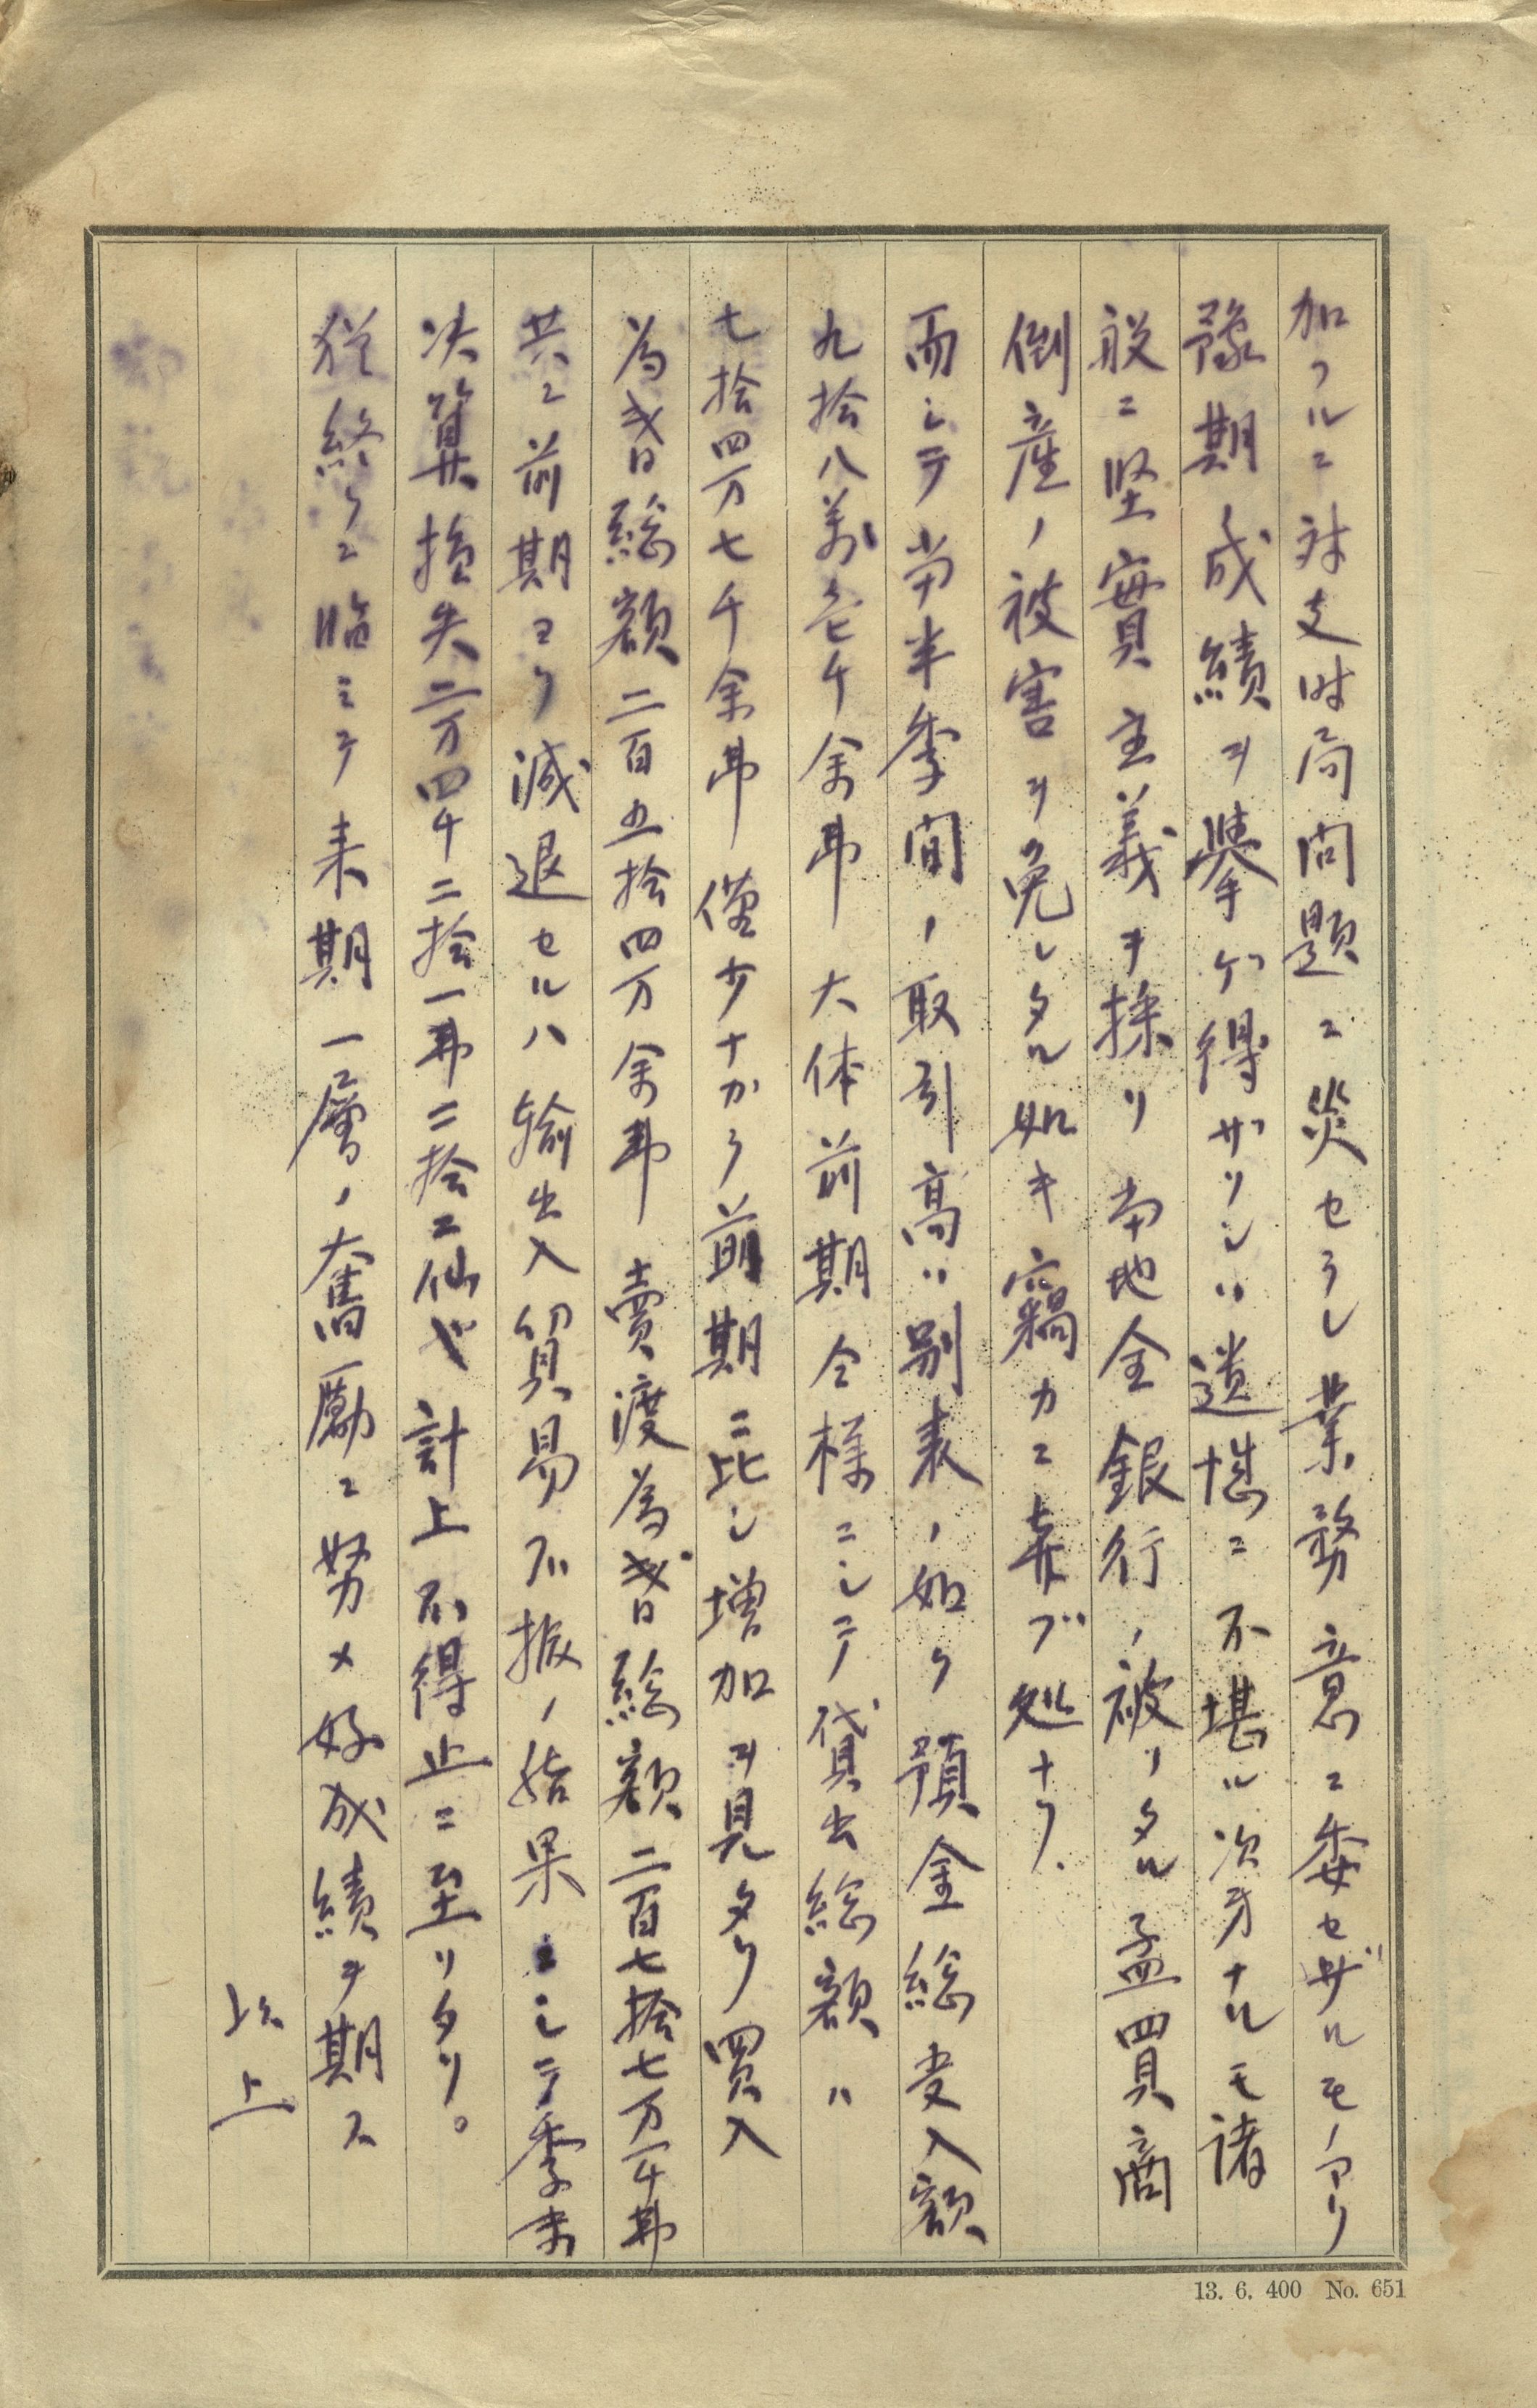 加フルニ対支時局問題ニ災セラレ業務意ニ委セザルモノアリ
豫期ノ成績ヲ挙ゲ得ザリシハ遺憾ニ不堪ル次第ナルモ諸
般ニ堅實主義ヲ採リ当地全銀行ノ被リタル孟買商
倒産ノ被害ヲ免レタル如キ竊カニ喜ブ処ナリ
而シテ当半季間ノ取引高ハ別表ノ如ク預金総受入額
九拾八萬壱千余弗大体前期仝様ニシテ貸出総額ハ
七拾四万七千余弗僅少ナカラ前期ニ比シ増加ヲ見タリ買入
為替総額二百五拾四万余弗賣渡為替総額二百七拾七万一千弗
共ニ前期ヨリ減退セルハ輸出入貿易不振ノ結果ニシテ季末
决算損失二万四千二拾一弗二拾二仙ヲ計上不得止ニ至リタリ。
猶終リニ臨ミテ来期一層ノ奮励ニ努メ好成績ヲ期ス
以上
13. 6. 400 No. 651